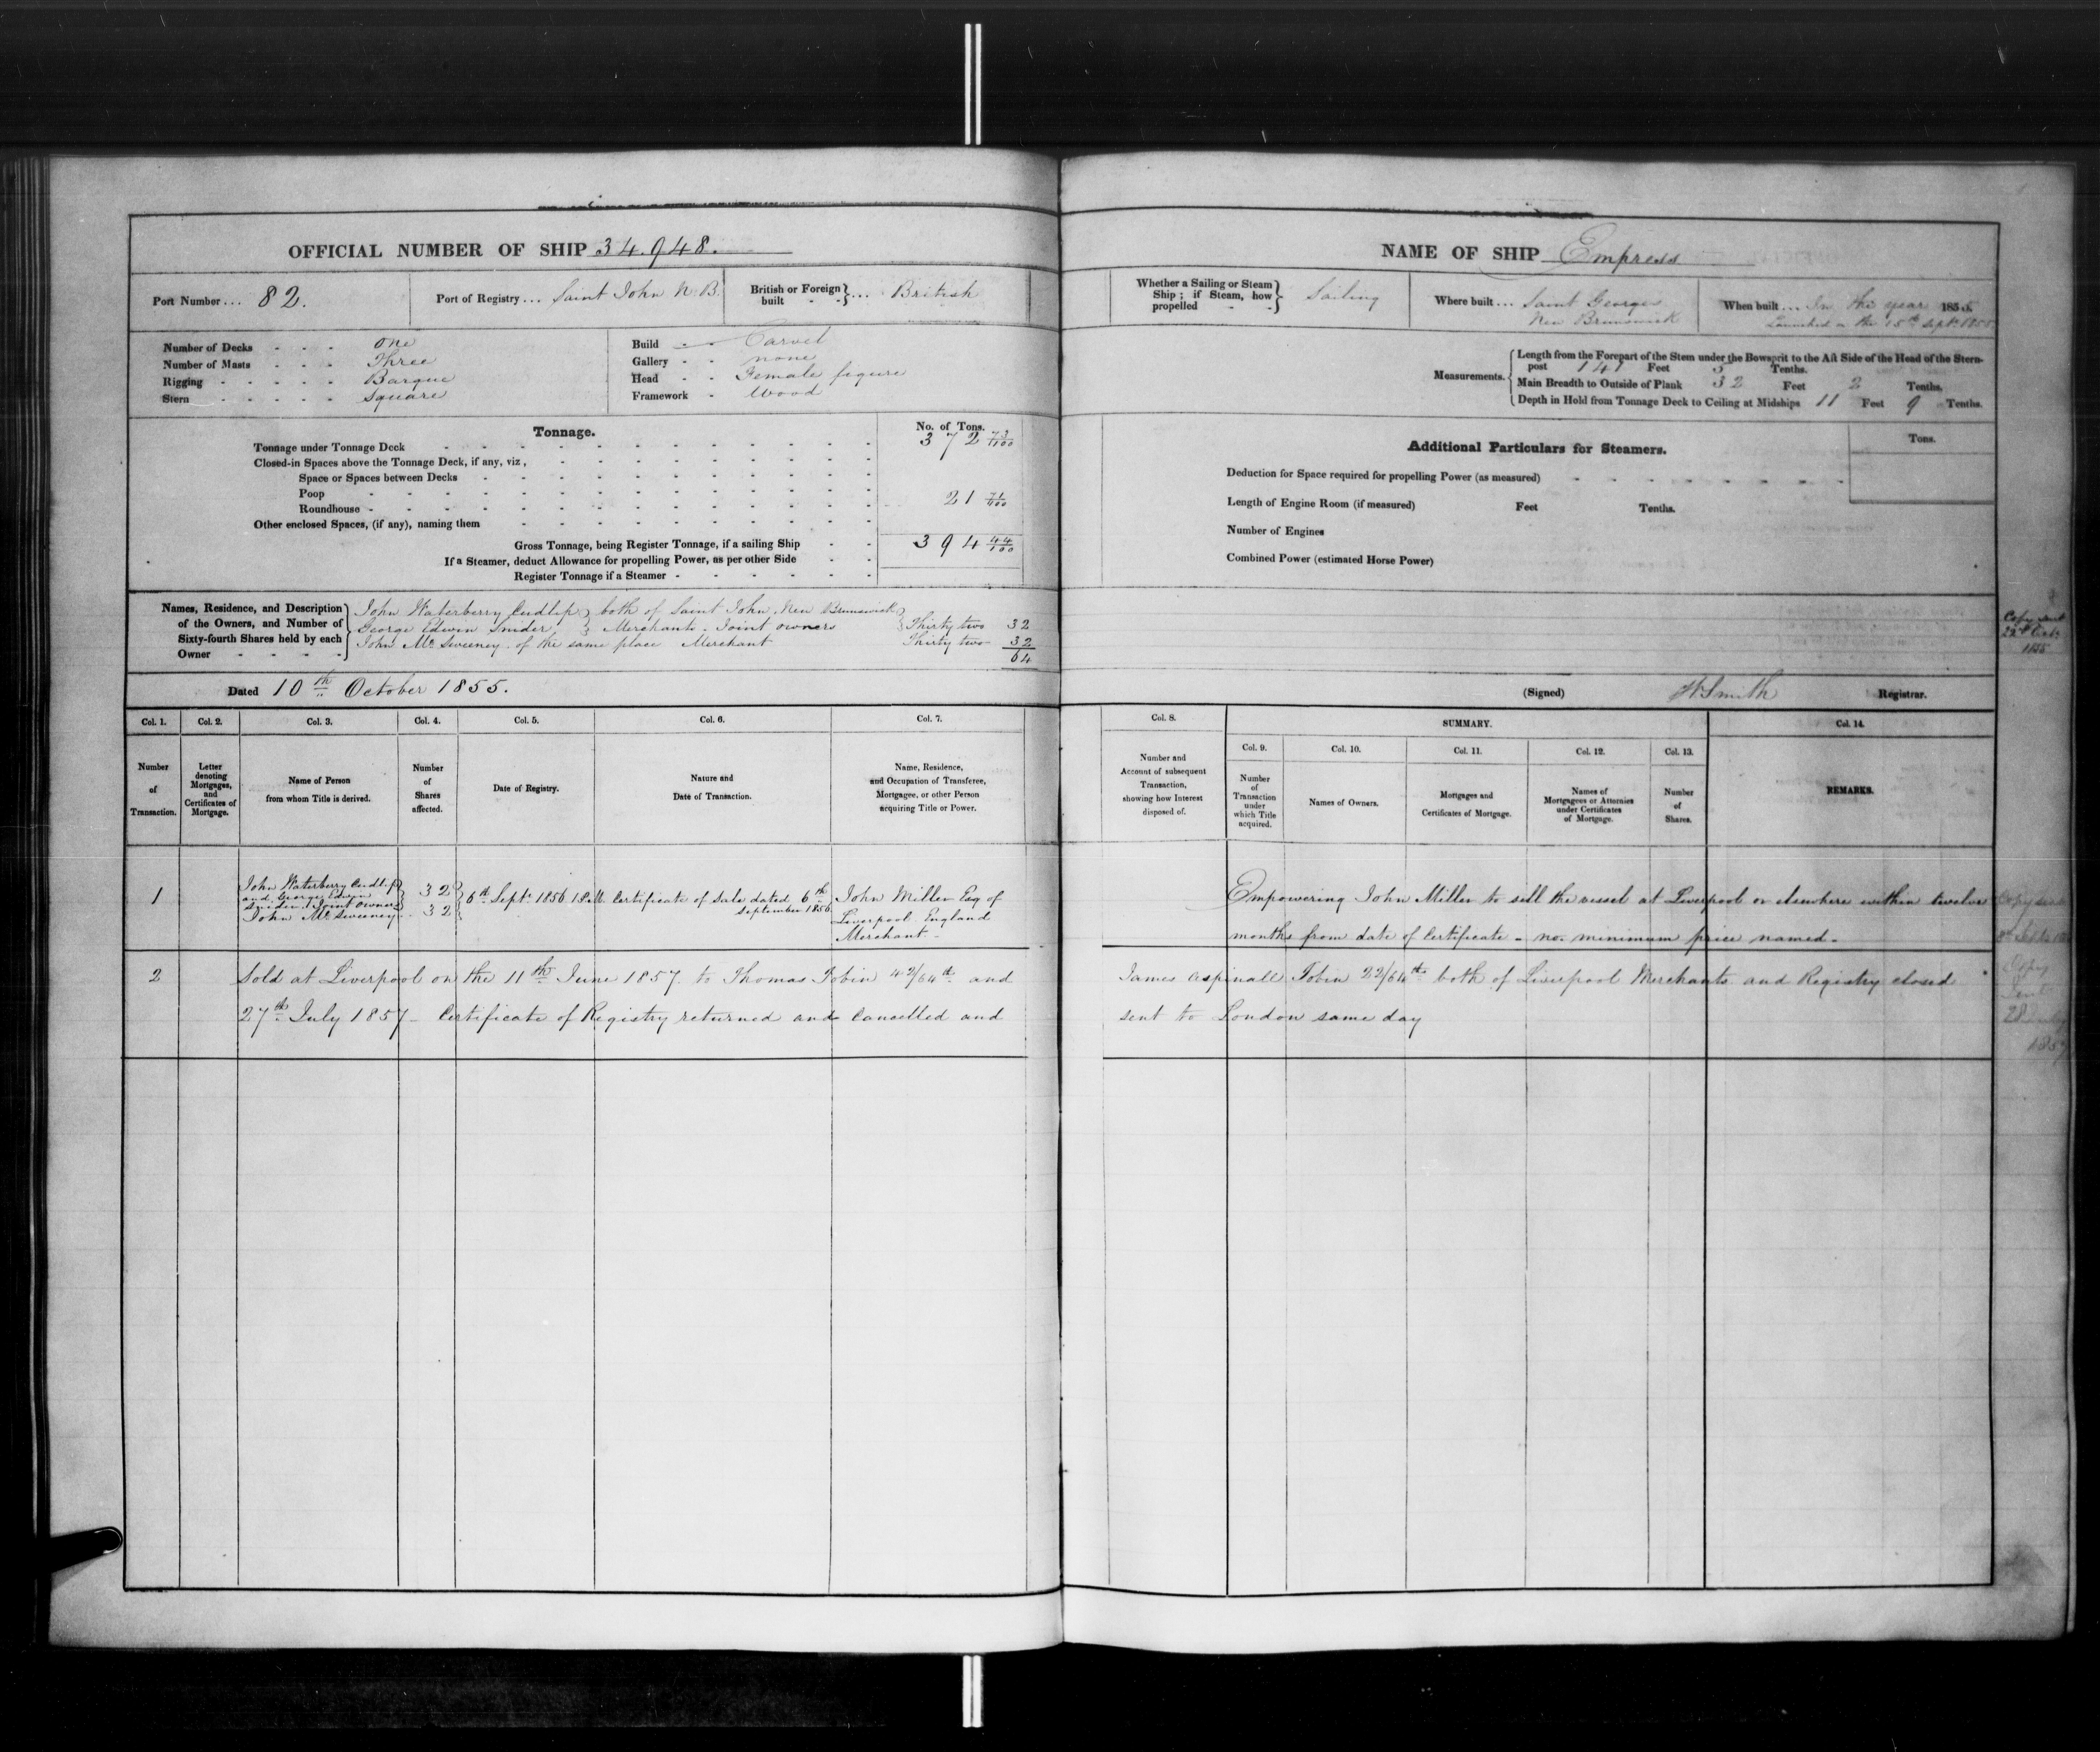 OFFICIAL NUMBER OF SHIP 34.948.
Port Number ... 82.
Port of Registry ... Saint John N.B.
British or Foreign built - - } ... British
Number of Decks - - - One
Number of Masts - - - Three
Rigging - - - - - Barque
Stern - - - - - Square
Build - - Carvel
Gallery - - none
Head - - Female figure
Framework - Wood
Tonnage.
No. of Tons.
Tonnage under Tonnage Deck 372 73/100
Closed-in Spaces above the Tonnage Deck, if any, viz,
Space or Spaces between Decks
Poop
Roundhouse - 21 71/100
Other enclosed Spaces, (if any), naming them
Gross Tonnage, being Register Tonnage, if a sailing Ship 394 44/100
If a Steamer, deduct Allowance for propelling Power, as per other Side
Register Tonnage if a Steamer
Names, Residence, and Description
of the Owners, and Number of
Sixty-fourth Shares held by each
Owner - - - -
John Waterberry Cudlip } both of Saint John New Brunswick
George Edwin Snider } Merchants. Joint owners } Thirty two 32
John McSweeney of the same place Merchant Thirty two 32
64
Dated 10th October 1855.
Col. 1. Col. 2. Col. 3. Col. 4. Col. 5. Col. 6. Col. 7.
Number of Transaction.
Letter denoting Mortgages, and Certificates of Mortgage.
Name of Person from whom Title is derived.
Number of Shares affected.
Date of Registry.
Nature and Date of Transaction.
Name, Residence, and Occupation of Transferee, Mortgagee, or other Person acquiring Title or Power.
1
John Waterberry Cudlip
and George Edwin
Snider. Joint owners
John McSweeney
32
32
6th Septr 1856
Certificate of Sale dated 6th
September 1856
John Miller Esq of
Liverpool England
Merchant -
2 Sold at Liverpool on the 11th June 1857 to Thomas Tobin 42/64th and
27th July 1857 - Certificate of Registry returned and cancelled and
NAME OF SHIP Empress
Whether a Sailing or Steam Ship; if Steam, how propelled - - } Sailing
Where built ... Saint Georges
New Brunswick
When built ... In the year 1855.
Launched on the 15th Septr 1855
Measurements.
Length from the Forepart of the Stem under the Bowsprit to the Aft Side of the Head of the Stern-
post 141 Feet 5 Tenths.
Main Breadth to Outside of Plank 32 Feet 2 Tenths.
Depth in Hold from Tonnage Deck to Ceiling at Midships 11 Feet 9 Tenths.
Additional Particulars for Steamers.
Tons.
Deduction for Space required for propelling Power (as measured)
Length of Engine Room (if measured) Feet Tenths.
Number of Engines
Combined Power (estimated Horse Power)
Copy sent
1855
(Signed) W Smith Registrar.
Col. 8. SUMMARY. Col. 14.
Col. 9. Col. 10. Col. 11. Col. 12. Col. 13.
Number and Account of subsequent Transaction, showing how Interest disposed of.
Number of Transaction under which Title acquired.
Names of Owners.
Mortgages and Certificates of Mortgage.
Names of Mortgagees or Attornies under Certificates of Mortgage.
Number of Shares.
REMARKS.
Empowering John Miller to sell the vessel at Liverpool or elsewhere within twelve
months from date of Certificate - no minimum price named -
James Aspinall Tobin 22/64th both of Liverpool Merchants and Registry closed
sent to London same day
Copy
Sent
28 July
1857